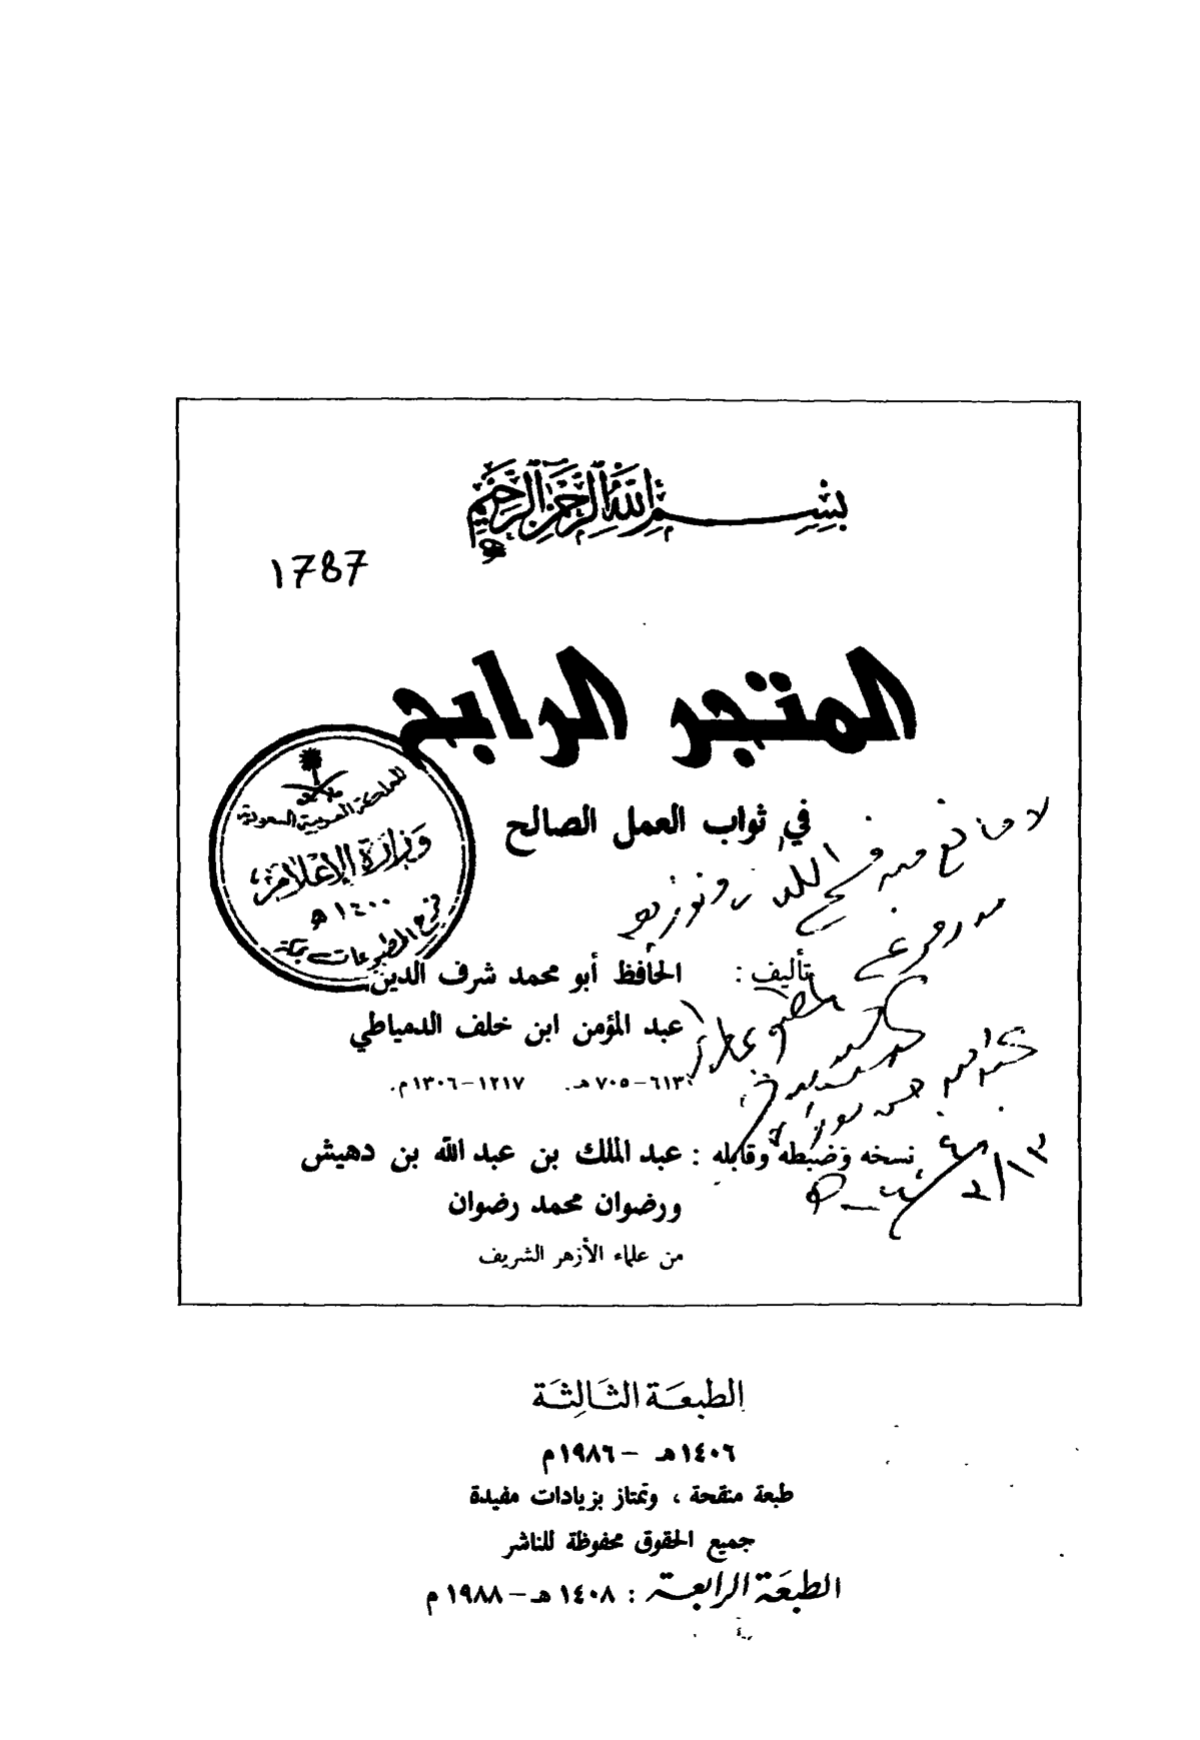 بسم الله الرحمن الرحيم
1787
المتجر الرابح
في ثواب العمل الصالح
المملكة العربية السعودية
وزارة الإعلام
١٤٠٠ هـ
فرع المطبوعات بمكة
لا مانع من فسح
تأليف : الحافظ أبو محمد شرف الدين
عبد المؤمن ابن خلف الدمياطي
٦١٣-٧٠٥ هـ. ١٢١٧-١٣٠٦م.
نسخه وضبطه وقابله : عبد الملك بن عبد الله بن دهيش
ورضوان محمد رضوان
من علماء الأزهر الشريف
الطبعة الثالثة
١٤٠٦هـ - ١٩٨٦م
طبعة منقحة ، وتمتاز بزيادات مفيدة
جميع الحقوق محفوظة للناشر
الطبعة الرابعة : ١٤٠٨ هـ-١٩٨٨ م